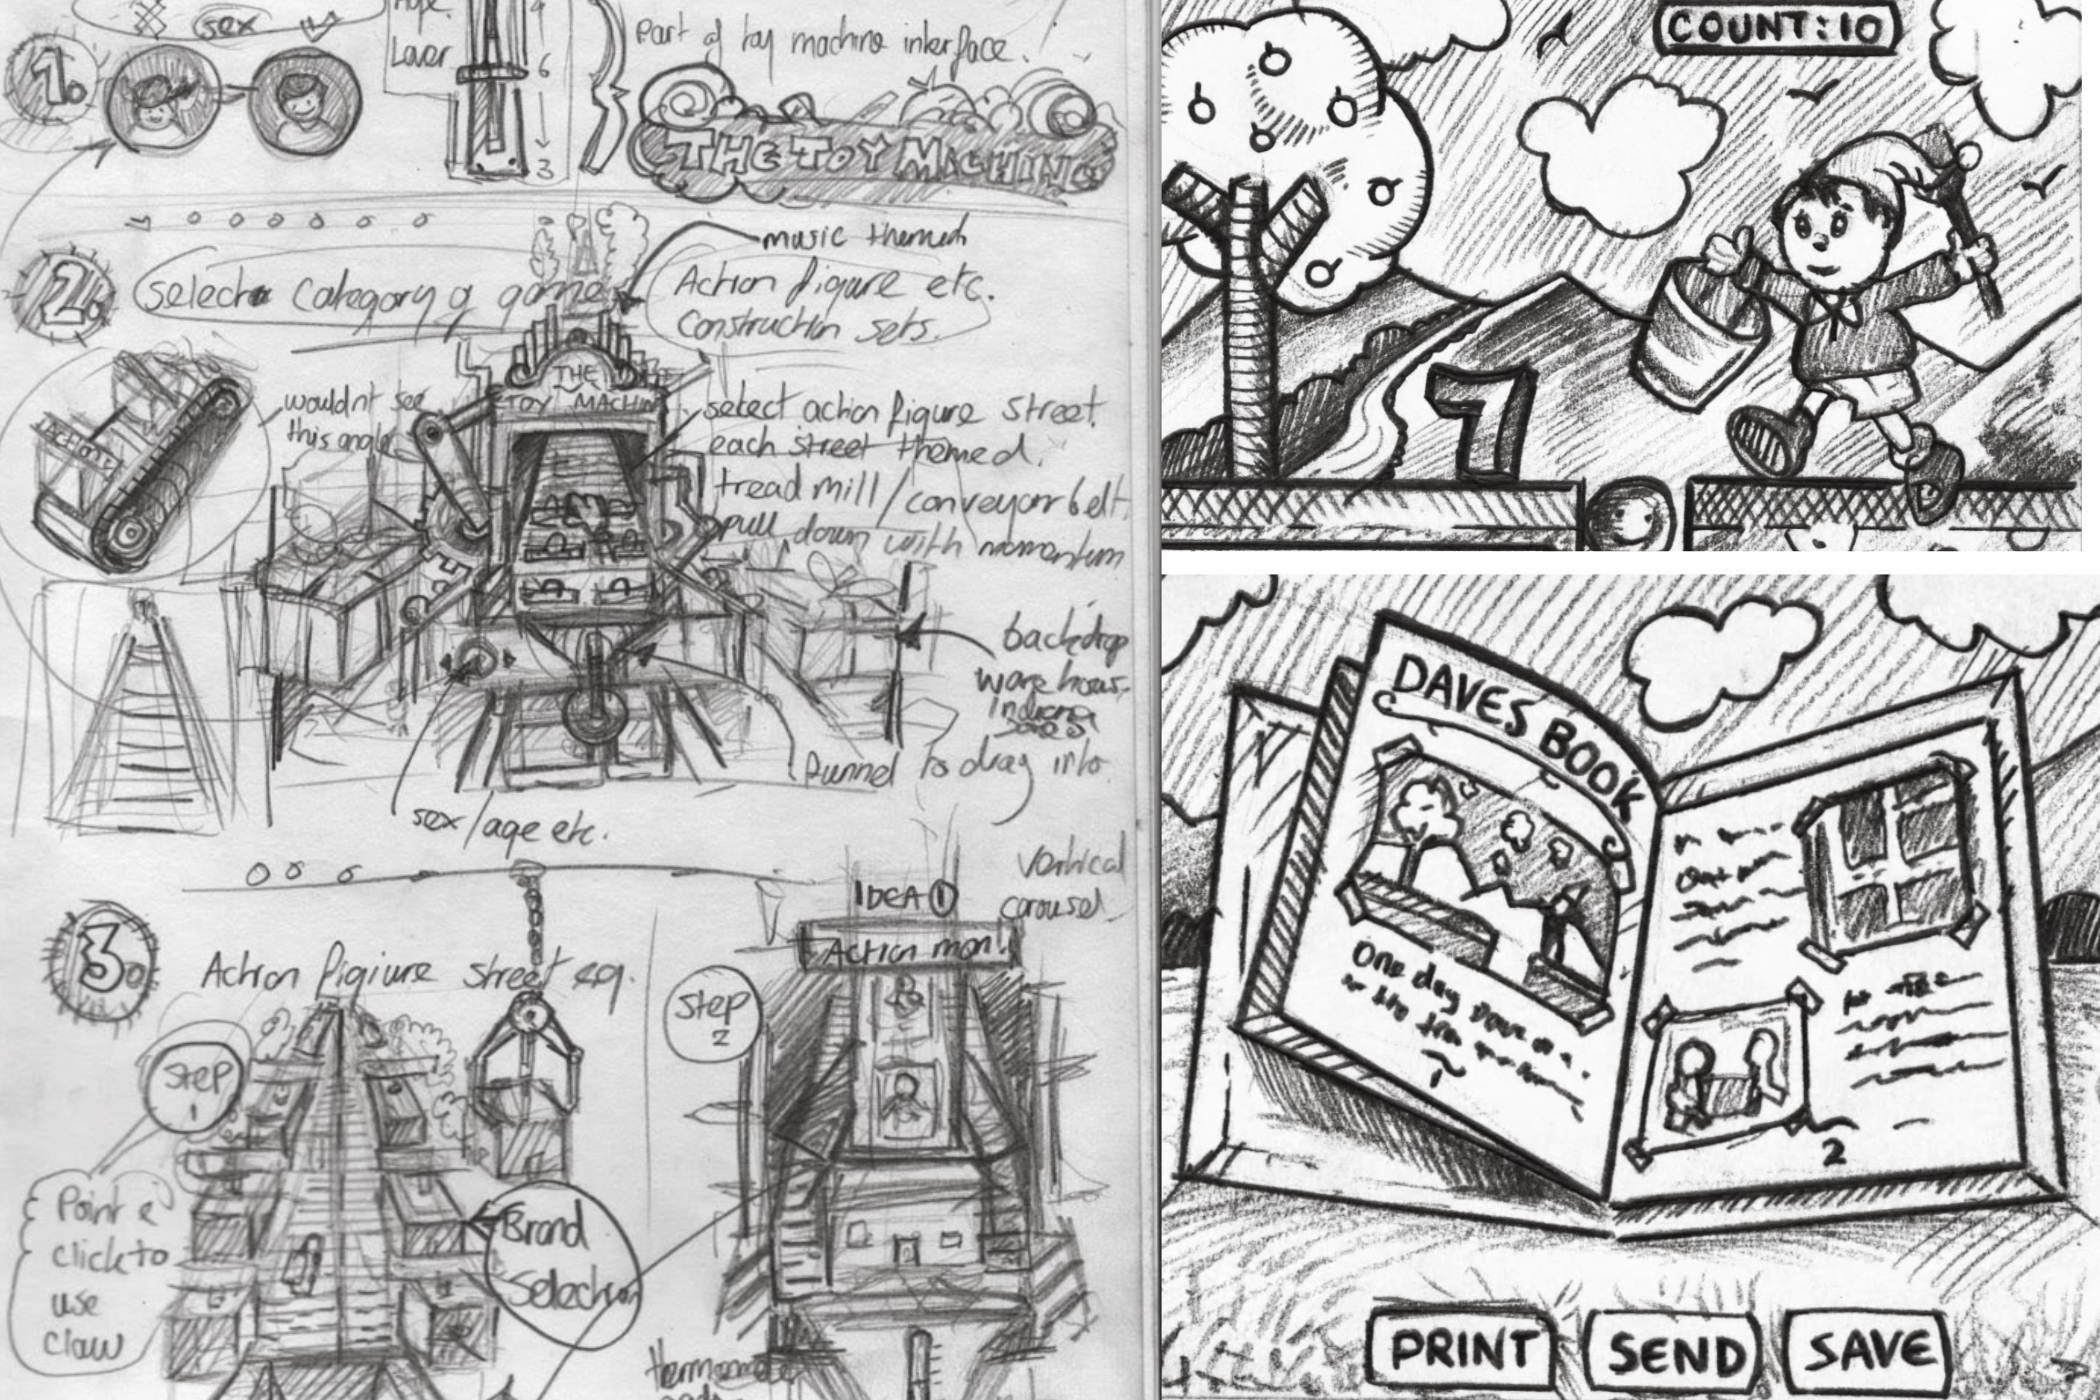 sex
1.
Lever
9
6
3
Part of toy machine interface.
THE TOY MACHINE
music themed
2.
Select a category of game
Action figure etc.
Construction sets.
THE
TOY MACHIN
wouldnt see
this angle
ACTION
select action figure street.
each street themed.
tread mill/conveyor belt.
pull down with momentum
backdrop
funnel to drag into.
sex/age etc.
Vertical
carousel
IDEA 1
3.
Action figiure street eg.
Action man!
Step
1
Step
2
Point &
click to
use
claw
Brand
Selection
COUNT:10
7
DAVES BOOK
One day Dave
1
2
PRINT
SEND
SAVE